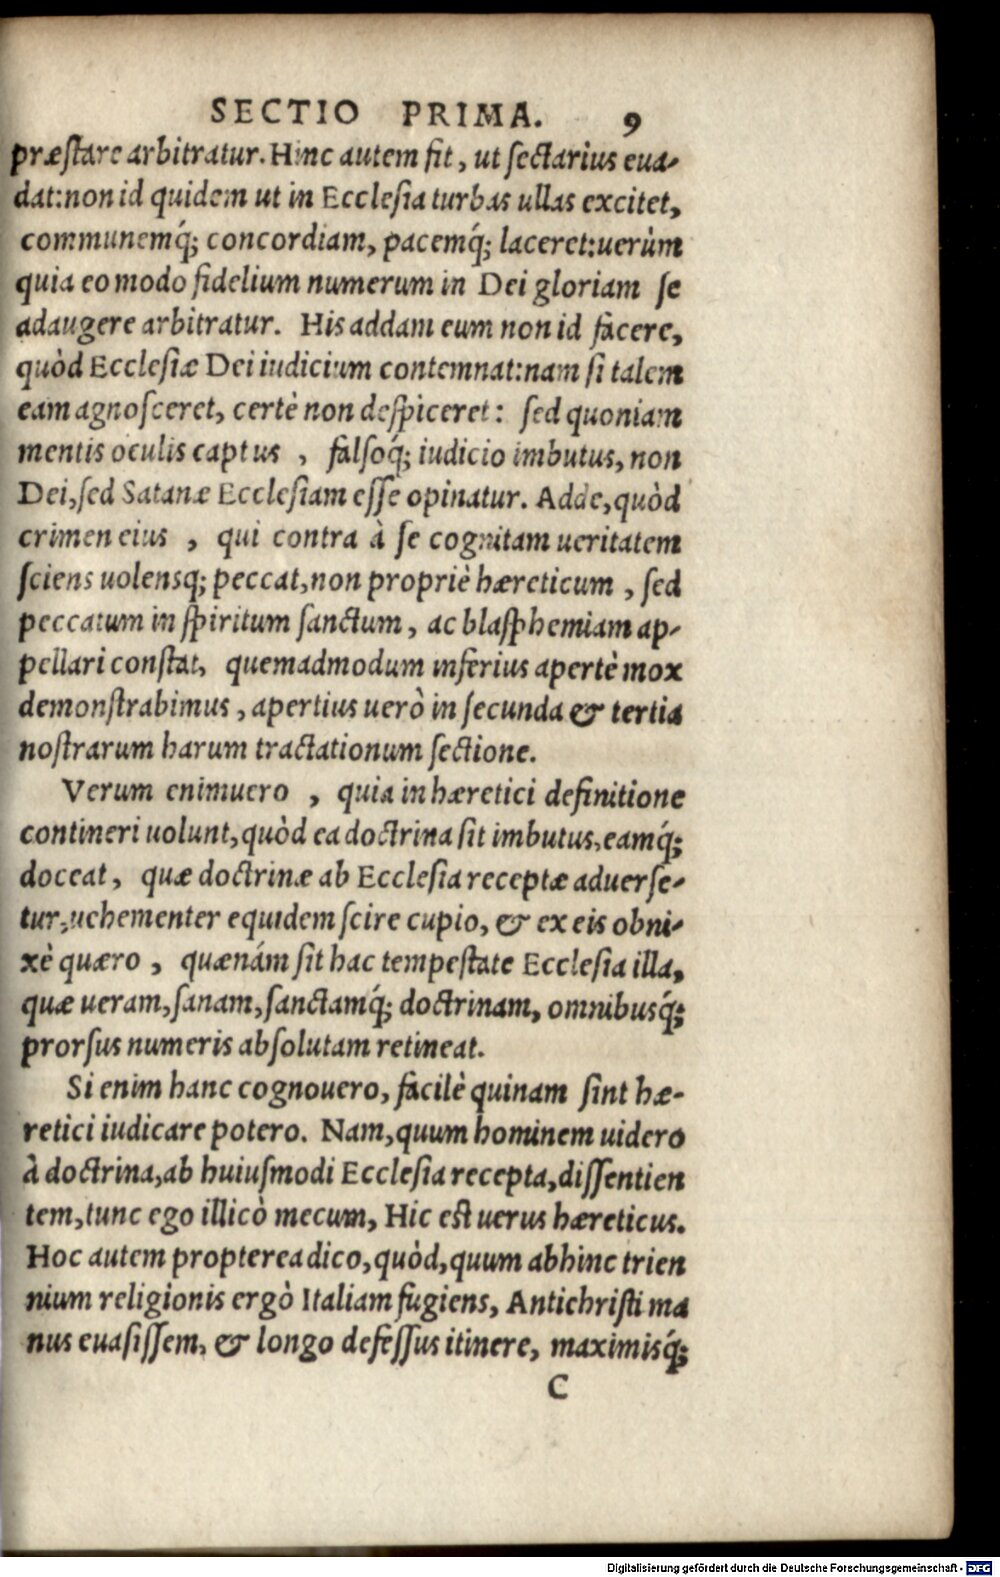 SECTIO PRIMA. 9
præſtare arbitratur. Hinc autem fit, ut ſectarius eua-
dat: non id quidem ut in Eccleſia turbas ullas excitet,
communemq́; concordiam, pacemq́; laceret: uerùm
quia eo modo fidelium numerum in Dei gloriam ſe
adaugere arbitratur. His addam eum non id facere,
quòd Eccleſiæ Dei iudicium contemnat: nam ſi talem
eam agnoſceret, certè non deſpiceret: ſed quoniam
mentis oculis captus, falſoq́; iudicio imbutus, non
Dei, ſed Satanæ Eccleſiam eſſe opinatur. Adde, quòd
crimen eius, qui contra à ſe cognitam ueritatem
ſciens uolensq; peccat, non propriè hæreticum, ſed
peccatum in ſpiritum ſanctum, ac blaſphemiam ap-
pellari conſtat, quemadmodum inferius apertè mox
demonſtrabimus, apertius uerò in ſecunda & tertia
noſtrarum harum tractationum ſectione.
Verum enimuero, quia in hæretici definitione
contineri uolunt, quòd ea doctrina ſit imbutus, eamq́;
doceat, quæ doctrinæ ab Eccleſia receptæ aduerſe-
tur, uehementer equidem ſcire cupio, & ex eis obni-
xè quæro, quænám ſit hac tempeſtate Eccleſia illa,
quæ ueram, ſanam, ſanctamq́; doctrinam, omnibusq́;
prorſus numeris abſolutam retineat.
Si enim hanc cognouero, facilè quinam ſint hæ-
retici iudicare potero. Nam, quum hominem uidero
à doctrina, ab huiuſmodi Eccleſia recepta, diſſentien
tem, tunc ego illicò mecum, Hic eſt uerus hæreticus.
Hoc autem propterea dico, quòd, quum abhinc trien
nium religionis ergò Italiam fugiens, Antichriſti ma
nus euaſiſſem, & longo defeſſus itinere, maximisq́;
C
Digitalisierung gefördert durch die Deutsche Forschungsgemeinschaft - DFG